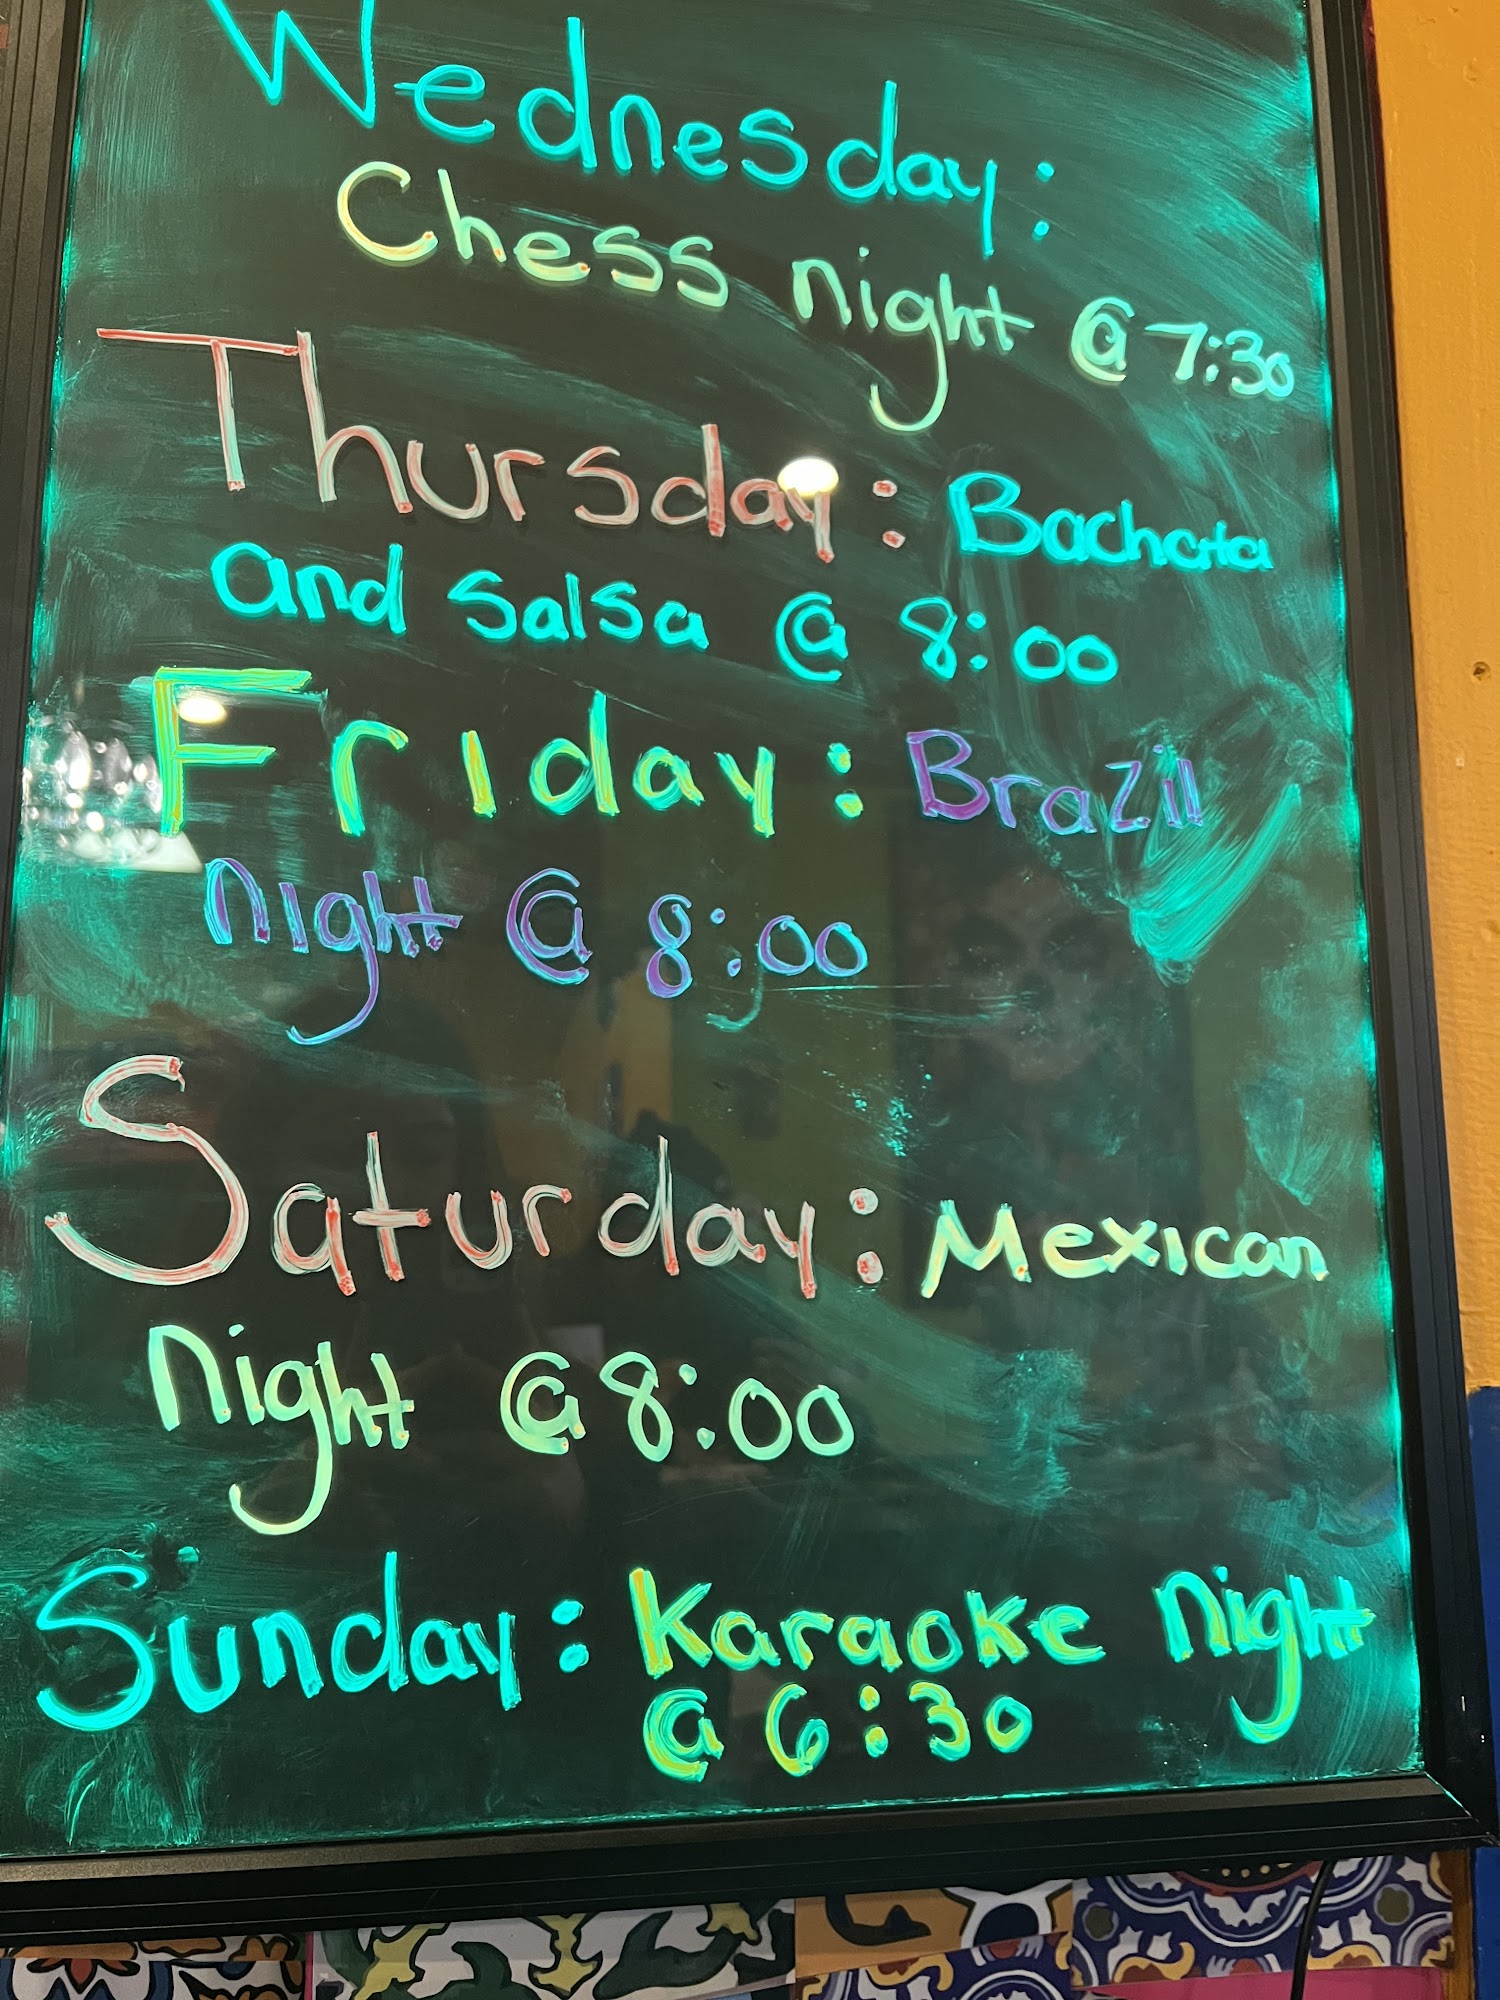 Wednesday:
Chess night @ 7:30
Thursday: Bachata
and Salsa @ 8:00
Friday: Brazil
night @ 8:00
Saturday: Mexican
night @ 8:00
Sunday: Karaoke night
@ 6:30